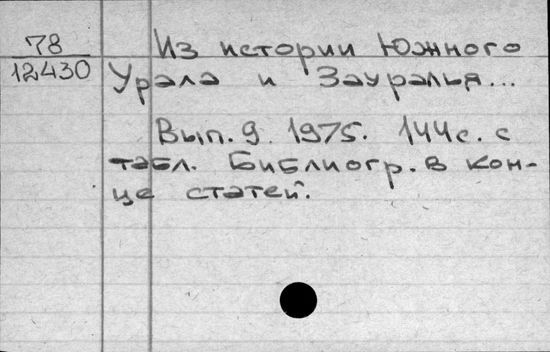 78
12430
Из истории Южного
Урала и Зауралья...
Вып. 9. 1975. 144с. с
табл. Библиогр. в кон-
це статей.